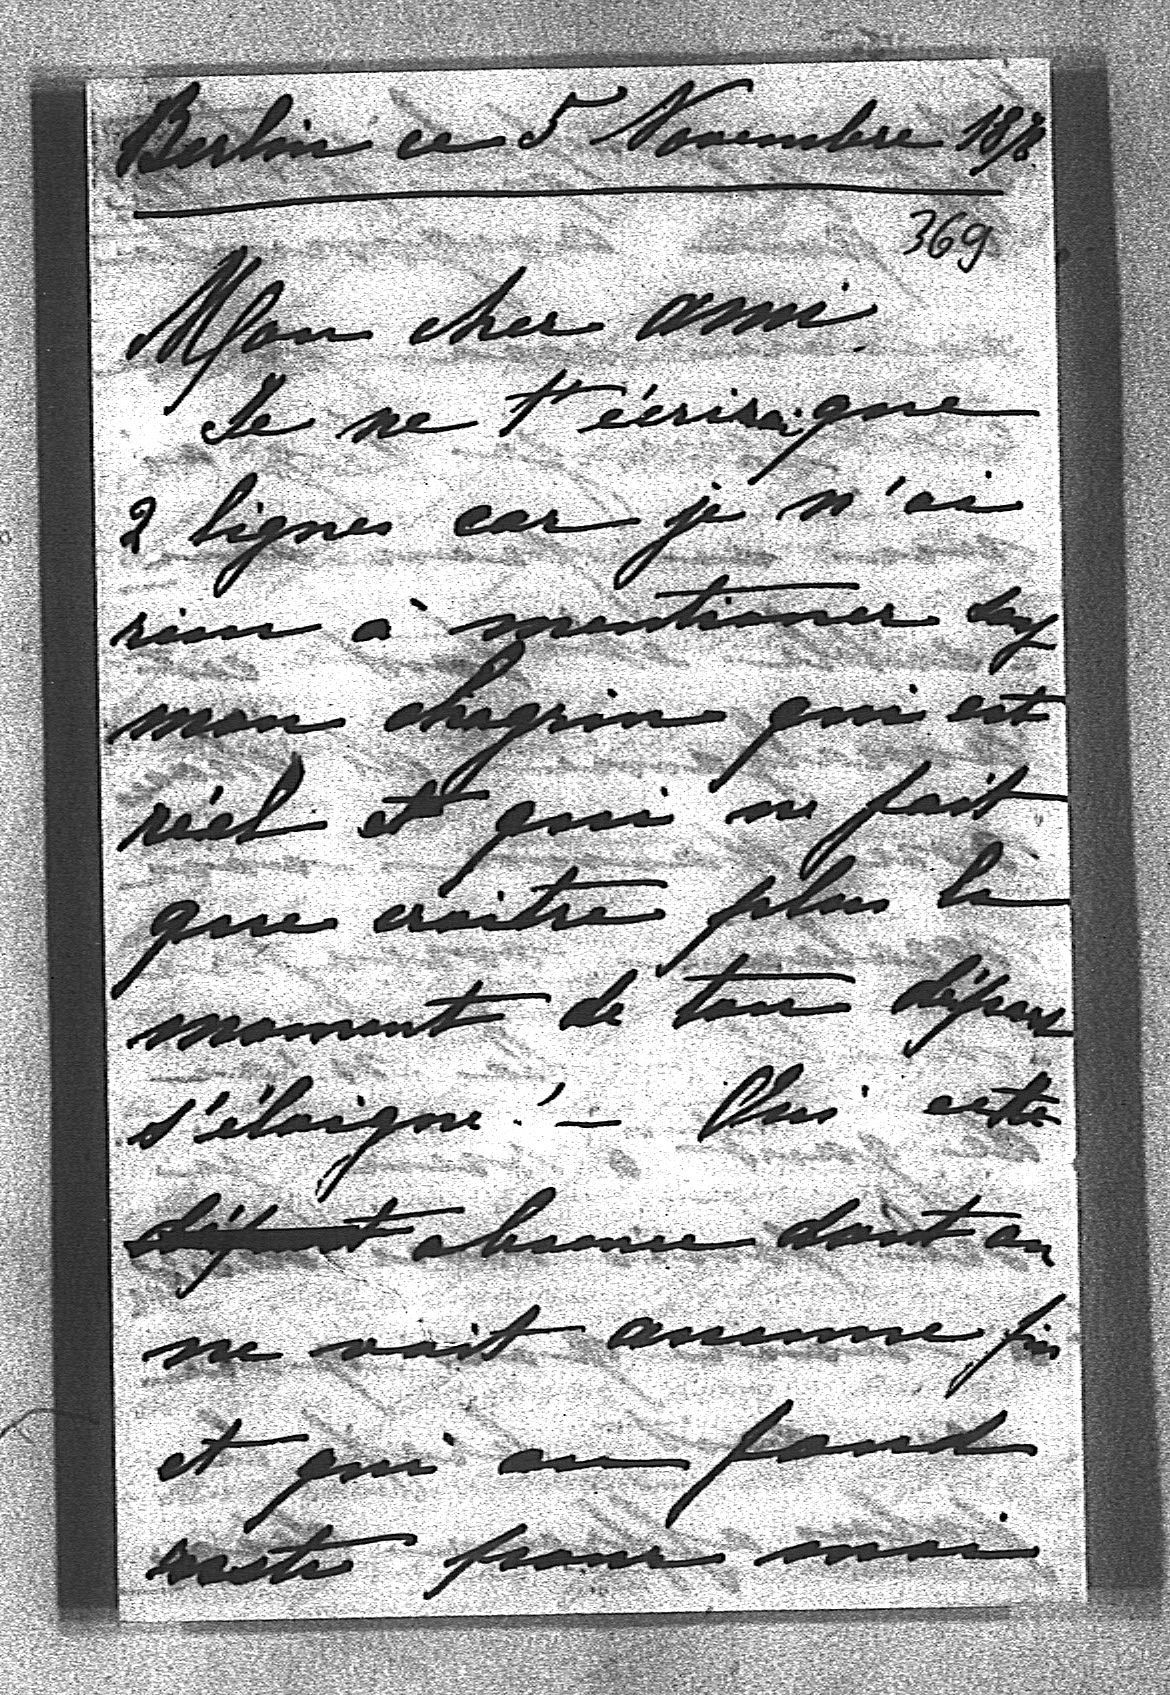 Berlin ce 5 Novembre 187
369
Mon cher ami.
Je ne t'écrirai que
2 lignes car je n'ai
rien à mentioner sauf
mon chagrin qui est
réel et qui ne fait
que croitre plus le
moment de ton départ
s'éloigne! — Oui cette
départ absence dont on
ne voit aucune fin
et qui au fond
reste pour moi